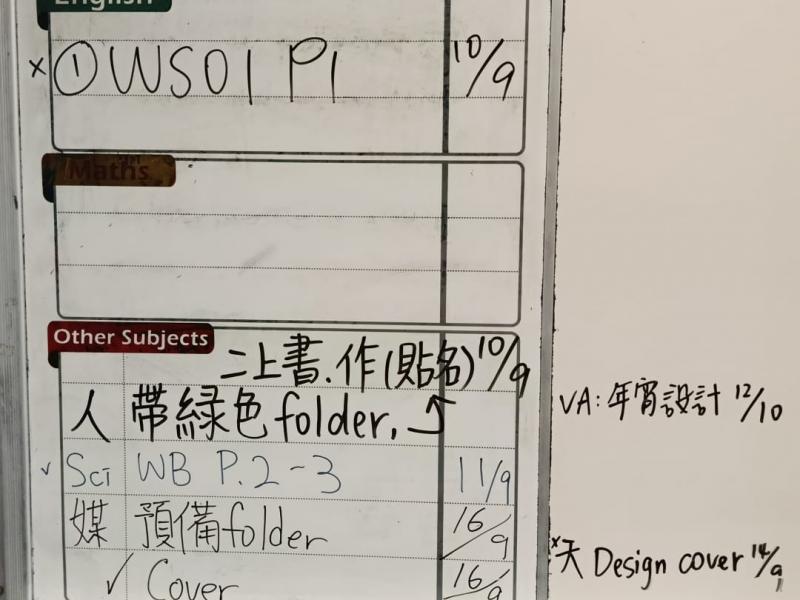 English
× ① WS01 P1 10/9
Maths
Other Subjects
二上書、作(貼名) 10/9
人 帶綠色folder,
✓ Sci WB P.2-3 11/9
媒 預備folder 16/9
✓ Cover 16/9
VA: 年宵設計 12/10
×天 Design cover 14/9